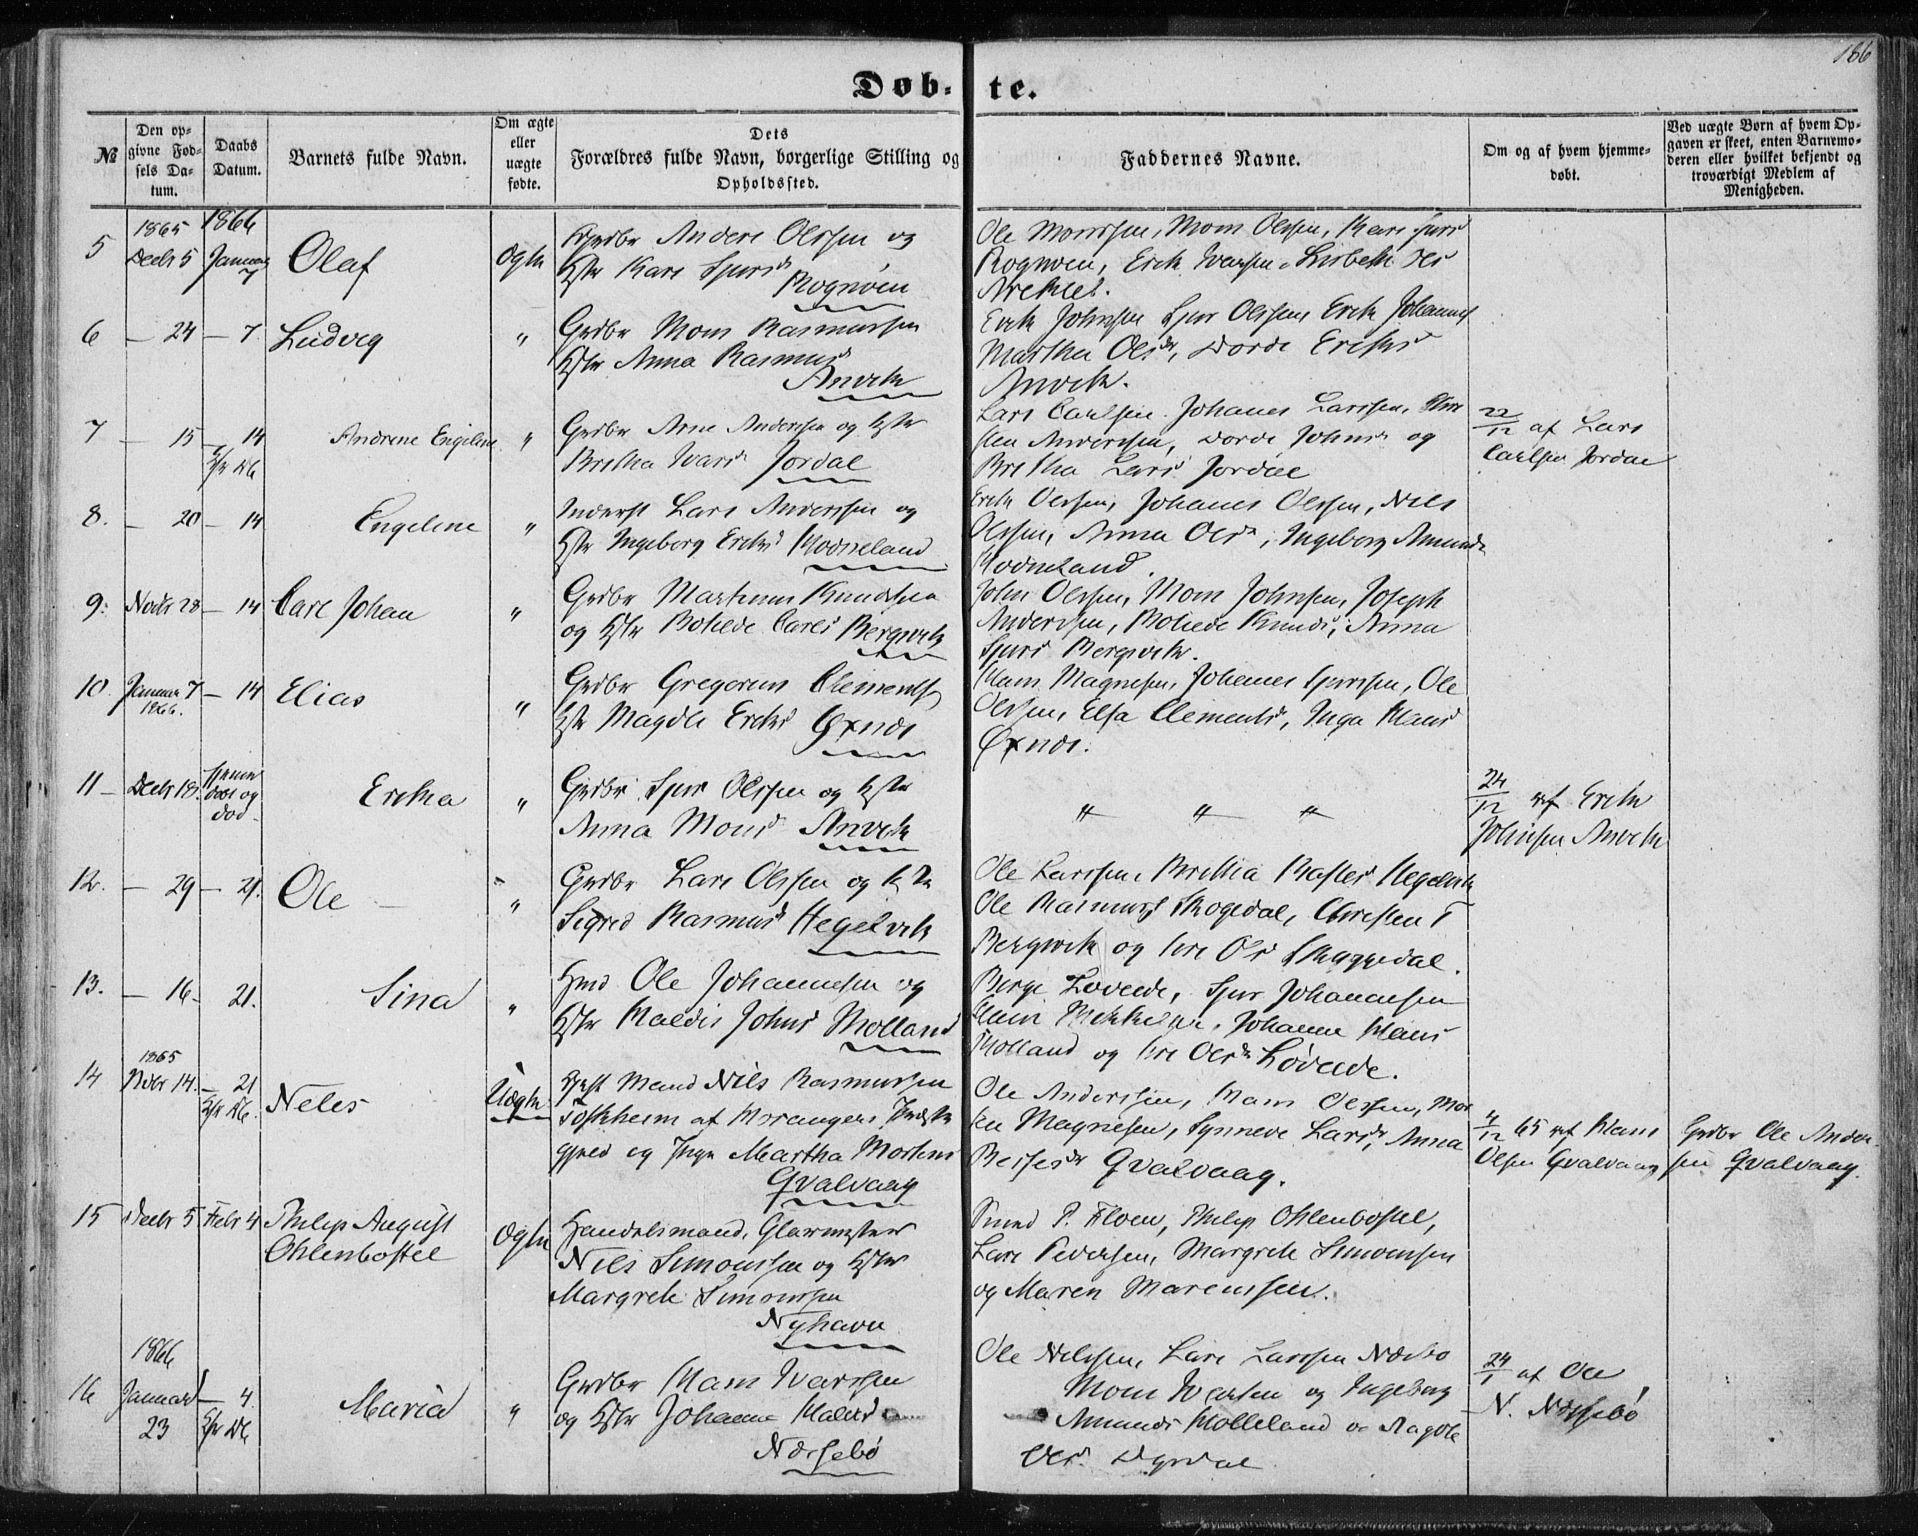 186
Døb- te.
№
Den op-
givne Fød-
sels Da-
tum.
Daabs
Datum.
Barnets fulde Navn.
Om ægte
eller
uægte
fødte.
Dets
Forældres fulde Navn, borgerlige Stilling og
Opholdssted.
Faddernes Navne.
Om og af hvem hjemme-
døbt.
Ved uægte Børn af hvem Op-
gaven er skeet, enten Barnemo-
deren eller hvilket bekjendt og
troværdigt Medlem af
Menigheden.
5 1865 Decbr 5 1866 Januar 7 Olaf Ægte
Grdbr Anders Olssen og
Hstr Kari Sjurs
Rognøen
Ole Monssen, Mons Olssen, Kari Sjurs
Rognøen, Erik Iversen, Lisbeth
6 — 24 — 7. Ludvig "
Grdbr Mons Rasmussen
Hstr Anna Rasmus
Anvik
Erik Johnsen Sjur Olssen, Erik Johannes
Martha Olsdr, Dorde Eriks
Anvik.
7 — 15 — 14 Andrene Engeline "
Grdbr Arne Anderssen og Hstr
Britha Ivars Jordal
Lars Carlsen. Johanes Larssen,
Anderssen, Dorde Johns og
Britha Lars Jordal
22/12 af Lars
Carlsen Jordal
8. — 20 — 14 Engeline "
Inderst Lars Anderssen og
Hstr Ingeborg Eriks
Erik Olssen, Johanes Olssen, Nils
Olssen, Anna Olsdr, Ingeborg Amunds
9. Novbr 28 — 14 Carl Johan "
Grdbr Martinus Knudssen
og Hstr Bolede Carls Bergsvik
John Olssen, Mons Johnsen, Joseph
Anderssen, Bolede Knuds, Anna
Sjurs Bergsvik.
10. Januar 7 1866. — 14 Elias "
Grdbr Gregorius Clements
Hstr Magdle Eriks Øxnæs
Hans Magnesen, Johanes Sjurssen, Ole
Olssen, Elsa Clements, Inga Hans
Øxnæs.
11 — Decbr 18. hjemme
døbt og
død Erika "
Grdbr Sjur Olssen og Hstr
Anna Mons Anvik
" " "
24/12 af Erik
Johnsen Anvik
12. — 29 — 21. Ole — "
Grdbr Lars Olssen og Hstr
Sigred Rasmus Hegelvik
Ole Larssen, Britha Hegelvik
Ole Rasmuss Skogedal, Christen T
Bergsvik og Ols Skaggedal.
13. — 16 — 21. Sina "
Hmd Ole Johannesen og
Hstr Maldis Johns Molland
Børge Løveide, Sjur Johannesen
Johanne Hans
Molland og Olsdr Løveide.
14 1865 Novbr 14. — 21 Neles Uægte
Mand Nils Rasmussen
af Præste
gjeld og Pige Martha Mortens
Qvalvaag
Ole Anderssen, Hans Olssen,
Magnesen, Synneve Lars, Anna
Qvalvaag.
4/12 65 af Hans
Olsen Qvalvaag
Grdbr Ole Ander-
sen Qvalvaag.
15 Decbr 5 Febr 4 Philip August
Ohlenbostel Ægte
Handelsmand, Glarmester
Nils Simonssen og Hstr
Margrete Simonssen
Nyhavn
Smed P. Floen, Philip Ohlenbostel,
Lars Pederssen, Margrete Simonsen
og Maren Marenssen.
16 1866 Januar 23 — 4. Maria "
Grdbr Hans Ivarssen
og Hstr Johanne
Næssebø
Ole Nilssen, Lars Larssen Næsbø
Mons Ivarsen og Ingeborg
Amunds Molleland og Magdle
24/1 af Ole
N. Næssebø